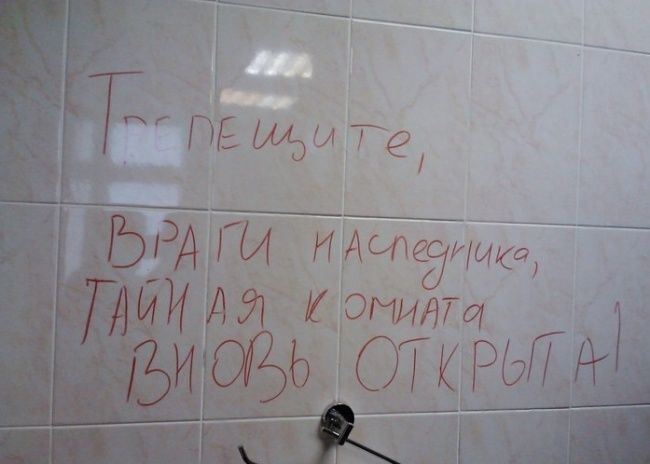 Трепещите,
ВРАГИ НАСЛЕДНИКА,
ТАЙНАЯ КОМНАТА
ВНОВЬ ОТКРЫТА!